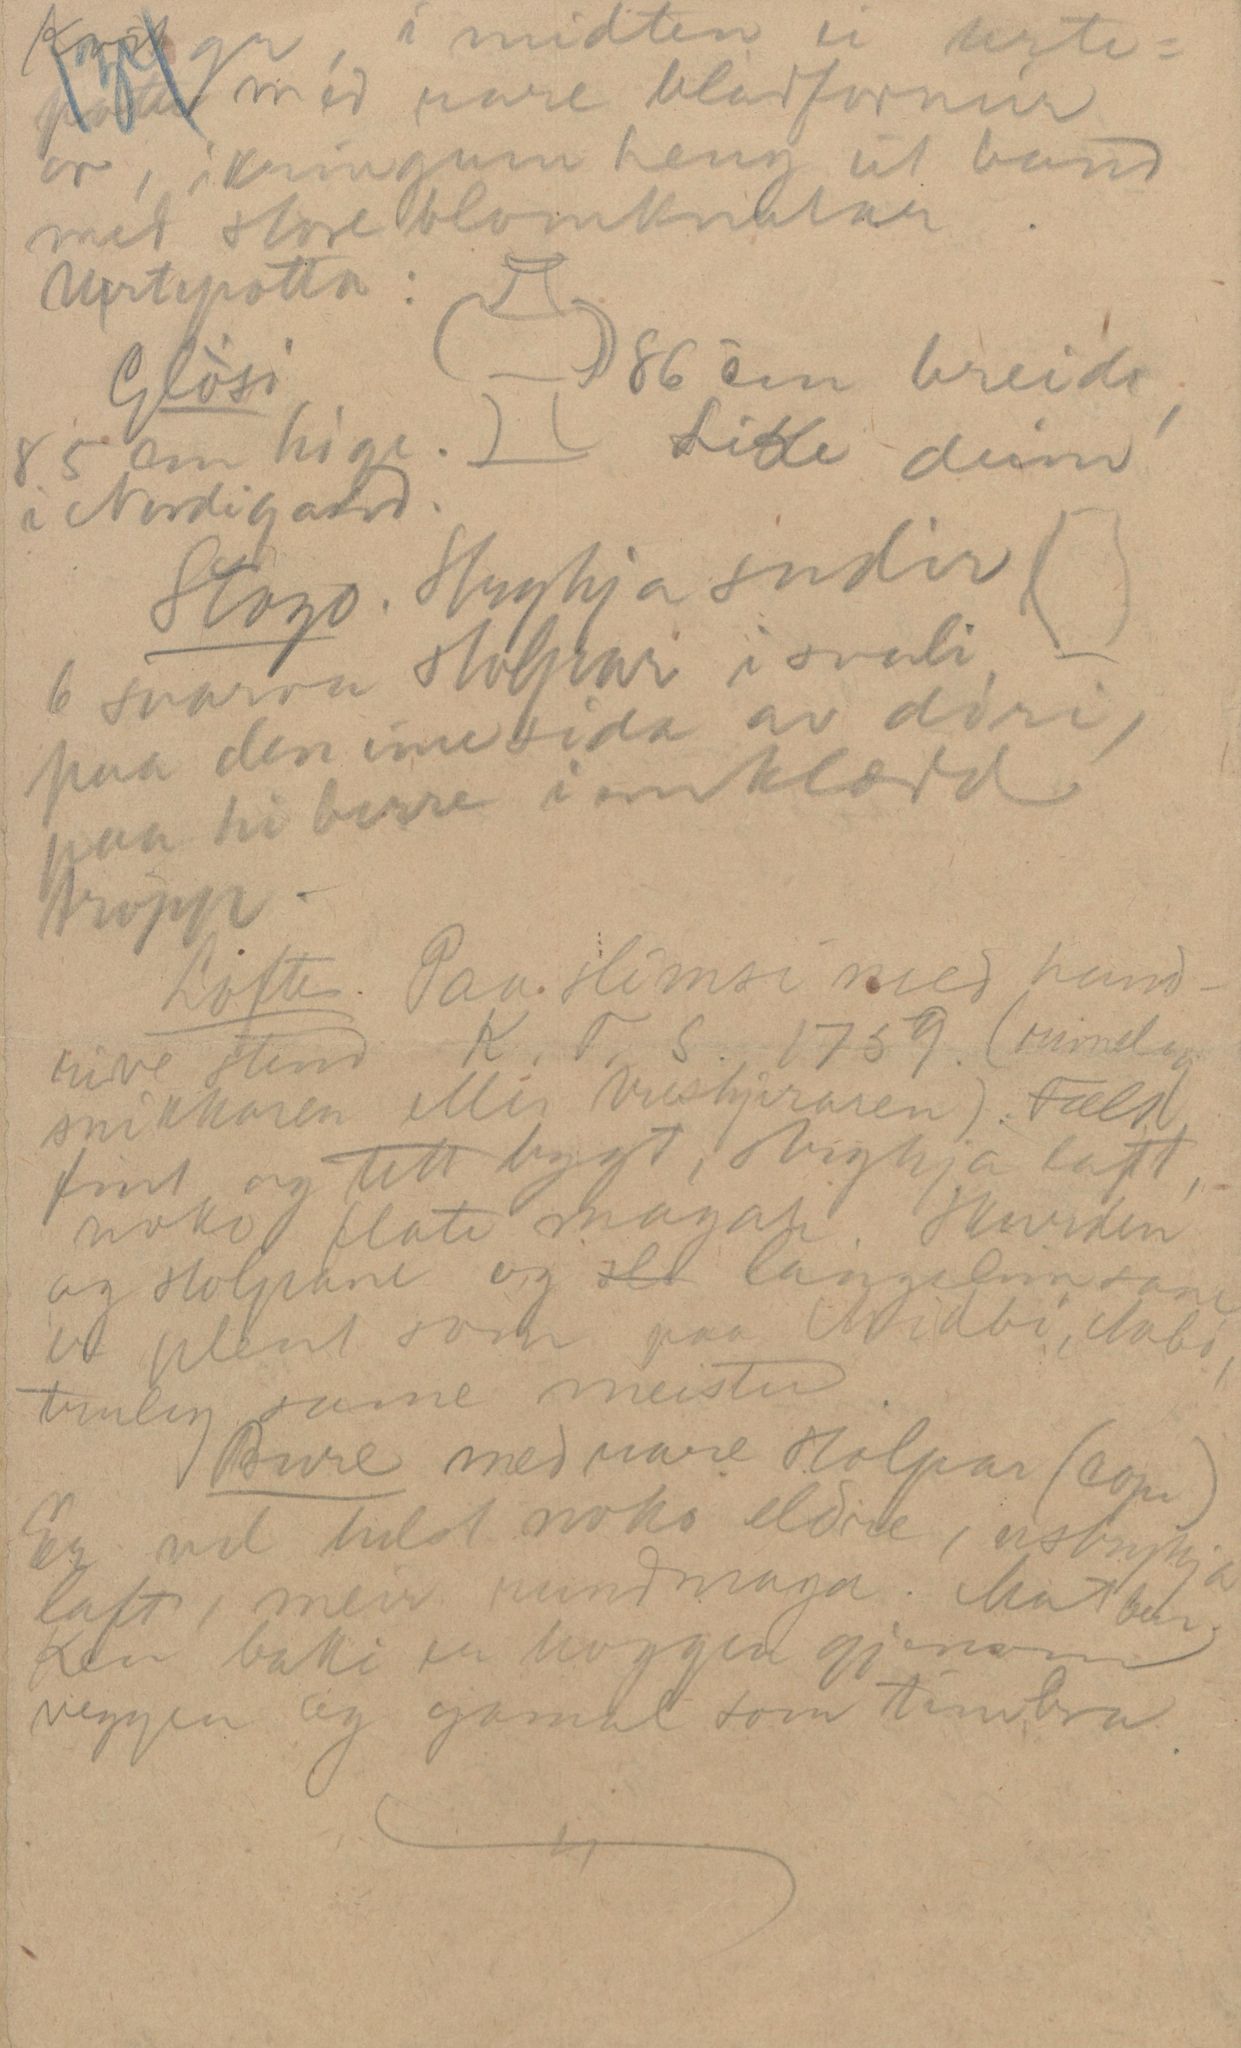 i midten ei urte=
potte med nare bladformur
or, ikringum heng ut band
med store blomknutar.
Urtepotta:
Glòsi 86 cm breide,
85 cm høge. Like deim
i Nordigaard.
Stogo. Styghja sudir
6 svarva stolpar i svali,
paa den eine sida av dòri,
paa hi berre i omklædd
tropp.
Loftet. Paa slimsi med hand-
rive stend K. T. S. 1759. (rimeleg
snikkaren eller treskjeraren). Fælt
fint og tett bygt, styghja laft,
noko flate magar. Skurden
og stolpane og langelimsane
er plent som paa Midbø, Aabø,
truleg same meister.
Bure med nare stolpar (cop)
Er vel helst noko eldre, usbryhja
laft, meir rundmaga. Matbur.
Len bakki er hoggen gjenom
veggen og gamal som timbra.